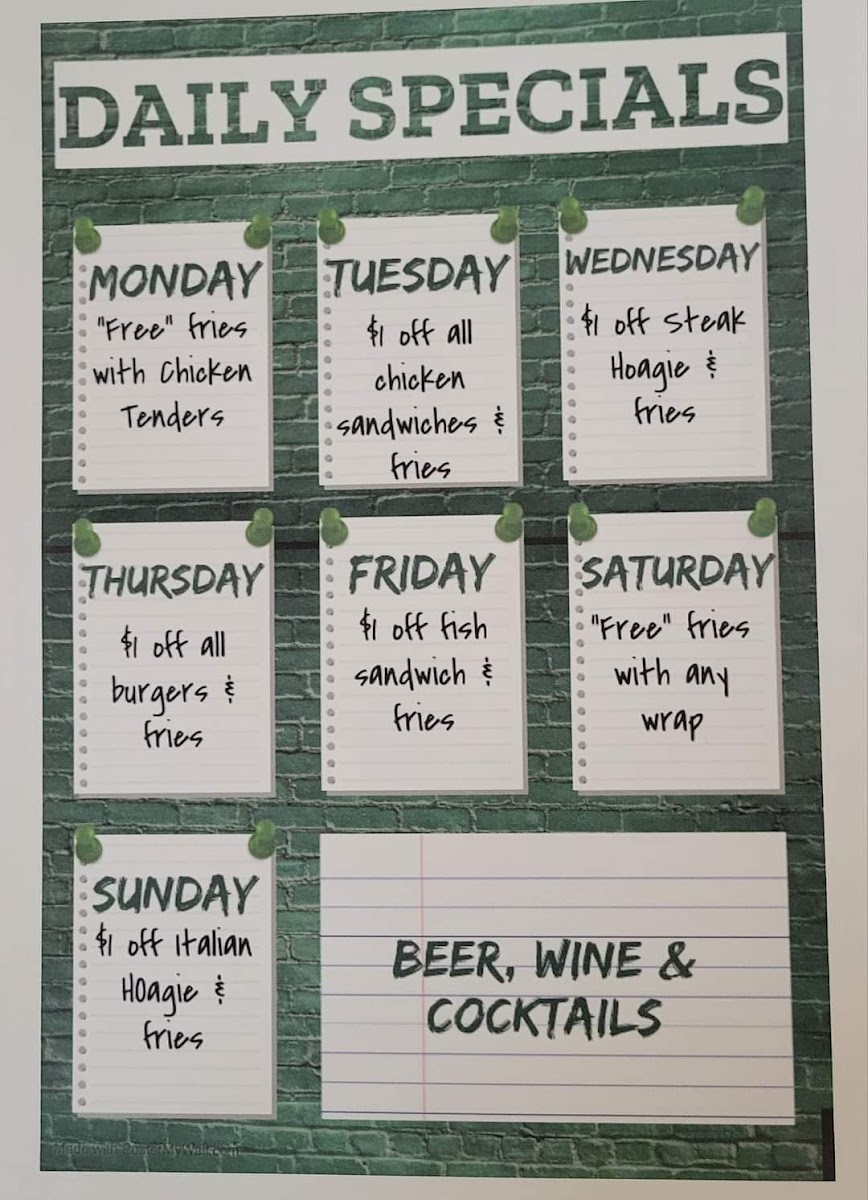 DAILY SPECIALS
MONDAY
"Free" fries
with Chicken
Tenders
TUESDAY
$1 off all
chicken
sandwiches &
fries
WEDNESDAY
$1 off Steak
Hoagie &
fries
THURSDAY
$1 off all
burgers &
fries
FRIDAY
$1 off fish
sandwich &
fries
SATURDAY
"Free" fries
with any
wrap
SUNDAY
$1 off Italian
HOagie &
fries
BEER, WINE &
COCKTAILS
Made with PosterMyWall.com